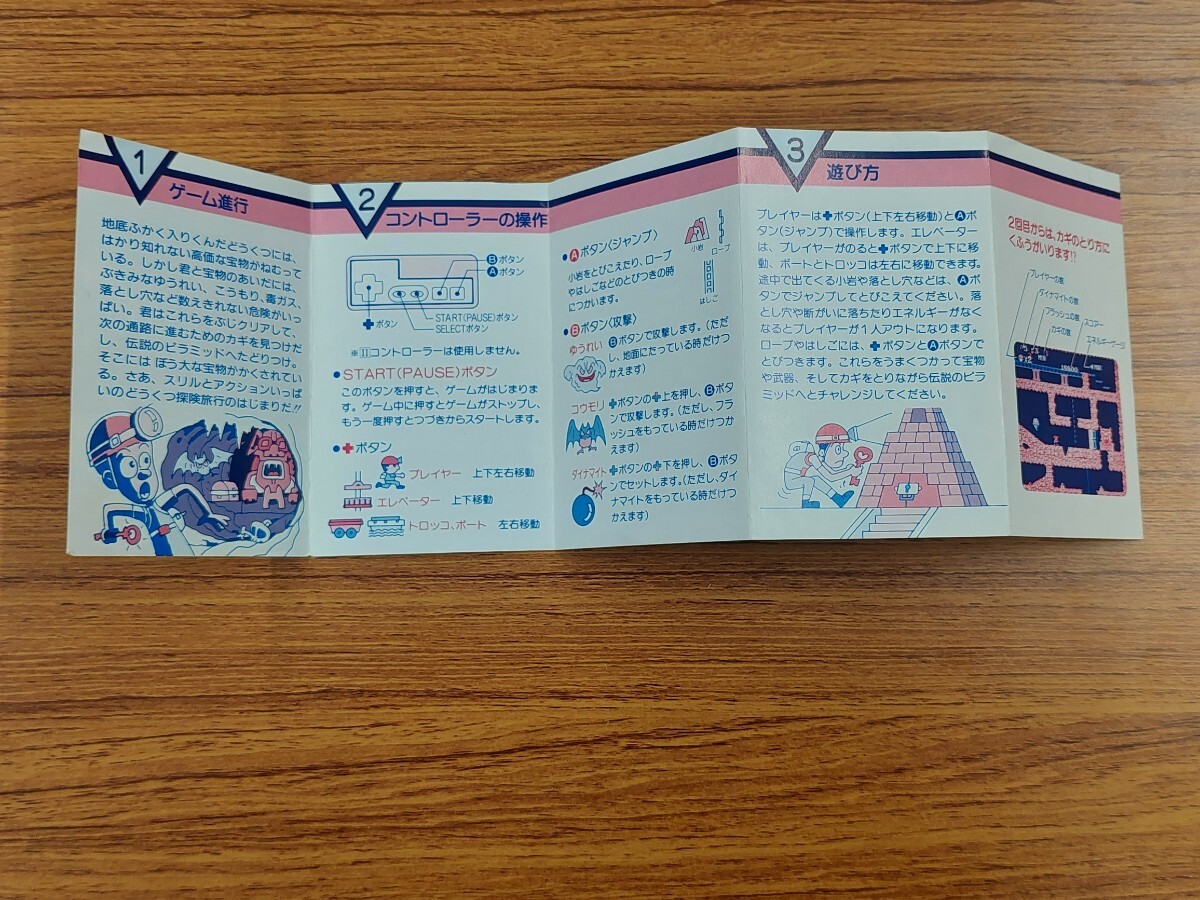 1
ゲーム進行
地底ふかく入りくんだどうくつには、
はかり知れない高価な宝物がねむって
いる。しかし君と宝物のあいだには、
ぶきみなゆうれい、こうもり、毒ガス、
落とし穴など数えきれない危険がいっ
ぱい。君はこれらをぶじクリアして、
次の通路に進むためのカギを見つけだ
し、伝説のピラミッドへたどりつけ。
そこには ぼう大な宝物がかくされてい
る。さあ、スリルとアクションいっぱ
いのどうくつ探険旅行のはじまりだ!!
2
コントローラーの操作
Bボタン
Aボタン
✚ボタン
START(PAUSE)ボタン
SELECTボタン
※IIコントローラーは使用しません。
●START(PAUSE)ボタン
このボタンを押すと、ゲームがはじまりま
す。ゲーム中に押すとゲームがストップし、
もう一度押すとつづきからスタートします。
●✚ボタン
プレイヤー 上下左右移動
エレベーター 上下移動
トロッコ、ボート 左右移動
●Aボタン〈ジャンプ〉
小岩をとびこえたり、ロープ
やはしごなどのとびつきの時
につかいます。
小岩
ロープ
はしご
●Bボタン〈攻撃〉
ゆうれい Bボタンで攻撃します。(ただ
し、地面にたっている時だけつ
かえます)
コウモリ ✚ボタンの✚上を押し、Bボタ
ンで攻撃します。(ただし、フラ
ッシュをもっている時だけつか
えます)
ダイナマイト ✚ボタンの✚下を押し、Bボタ
ンでセットします。(ただし、ダイ
ナマイトをもっている時だけつ
かえます)
3
遊び方
プレイヤーは✚ボタン(上下左右移動)とAボ
タン(ジャンプ)で操作します。エレベーター
は、プレイヤーがのると✚ボタンで上下に移
動、ボートとトロッコは左右に移動できます。
途中で出てくる小岩や落とし穴などは、Aボ
タンでジャンプしてとびこえてください。落
とし穴や断がいに落ちたりエネルギーがなく
なるとプレイヤーが1人アウトになります。
ロープやはしごには、✚ボタンとAボタンで
とびつきます。これらをうまくつかって宝物
や武器、そしてカギをとりながら伝説のピラ
ミッドへとチャレンジしてください。
2回目からは、カギのとり方に
くふうがいります!?
プレイヤーの数
ダイナマイトの数
フラッシュの数
カギの数
スコアー
エネルギーゲージ